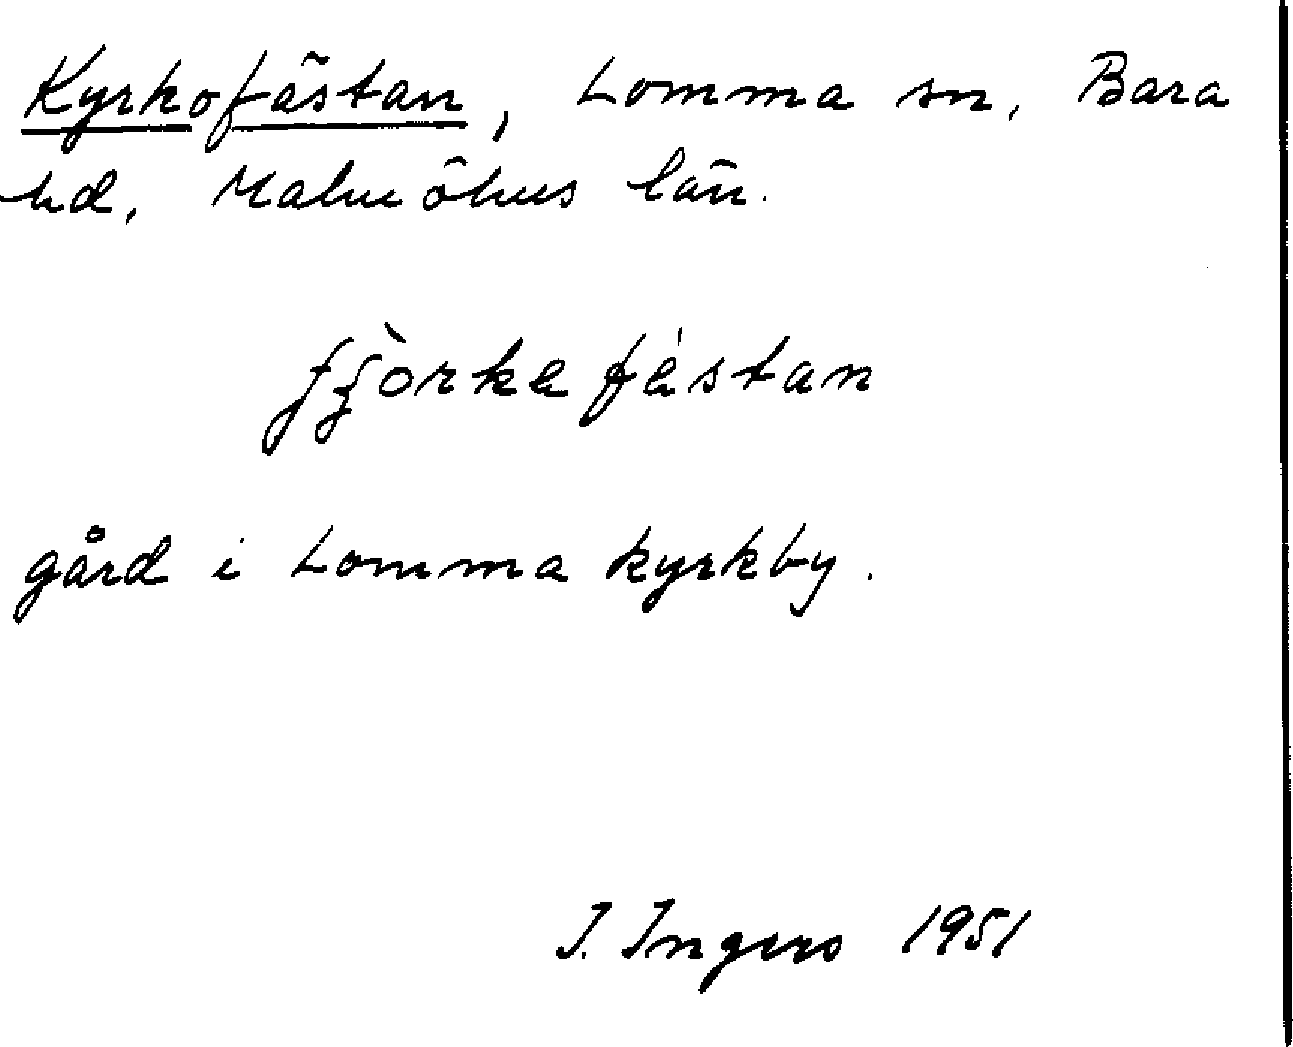 Kyrkofästan, Lomma sn, Bara
hd, Malmöhus län.
fʒòrkefästan
gård i Lomma kyrkby.
I. Ingers 1951